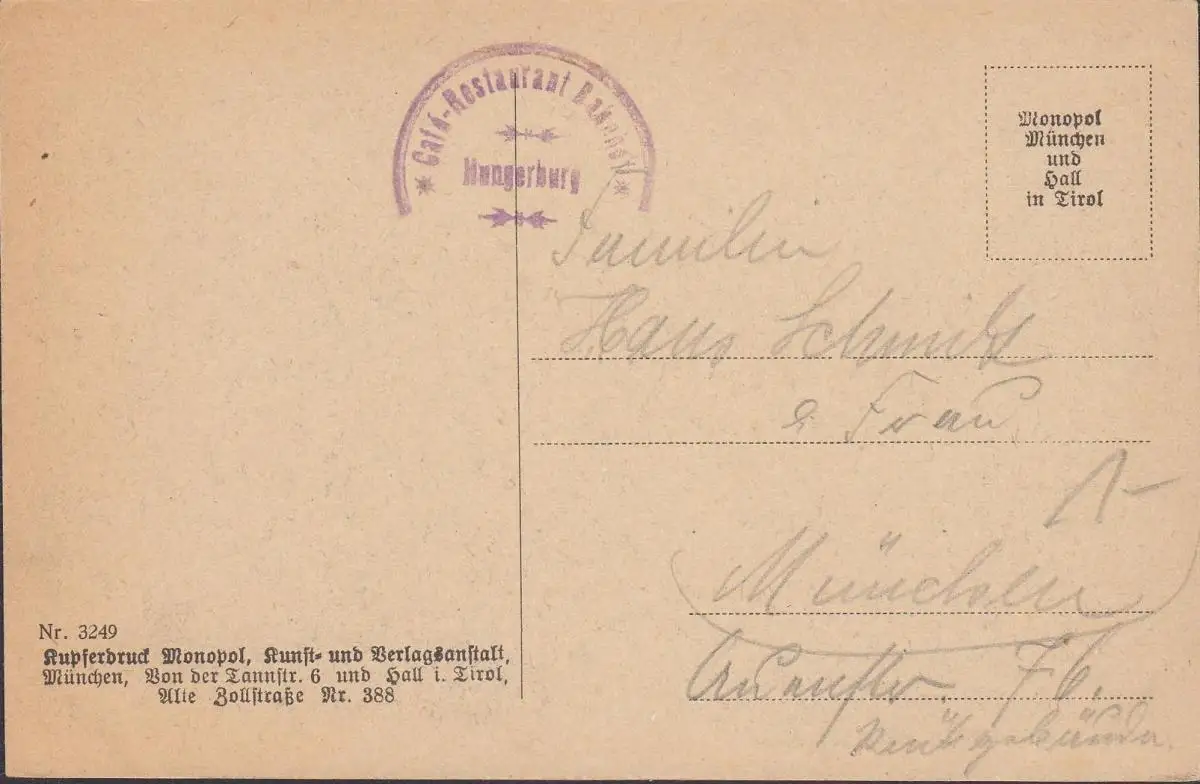 Café-Restaurant Bahnhof
Hungerburg
Monopol
München
und
Hall
in Tirol
Familie
Hans Schmidt
& Frau
München
Auenstr. 76.
Rückgebäude.
Nr. 3249
Kupferdruck Monopol, Kunst- und Verlagsanstalt,
München, Von der Tannstr. 6 und Hall i. Tirol,
Alte Zollstraße Nr. 388